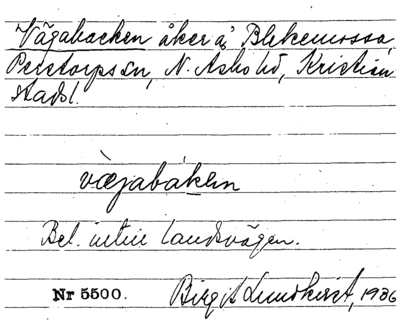 Vägabacken åker å Blekemossa,
Perstorps sn, N. Åsbo hd, Kristian
stads l.
vägabákεn
Bel. intill landsvägen.
Nr 5500. Birgit Lundkvist, 1936